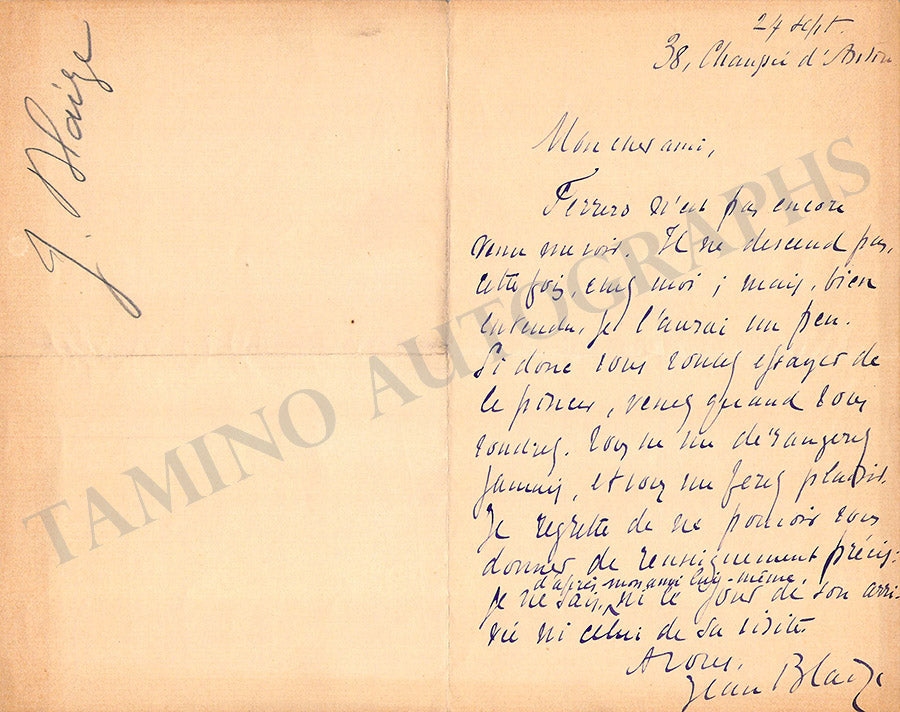 J. Blaize
24 sept.
38, Chaussée d'Antin
Mon cher ami,
Ferrero n'est pas encore
venu me voir. Il ne descend pas,
cette fois, chez moi ; mais, bien
entendu, je l'aurai un peu.
Si donc vous voulez essayer de
le pincer, venez quand vous
voudrez. Vous ne me dérangerez
jamais, et vous me ferez plaisir.
Je regrette de ne pouvoir vous
donner de renseignement précis :
d'après mon ami lui-même,
je ne sais, ni le jour de son arri-
vée ni celui de sa visite.
A vous,
Jean Blaize
TAMINO AUTOGRAPHS